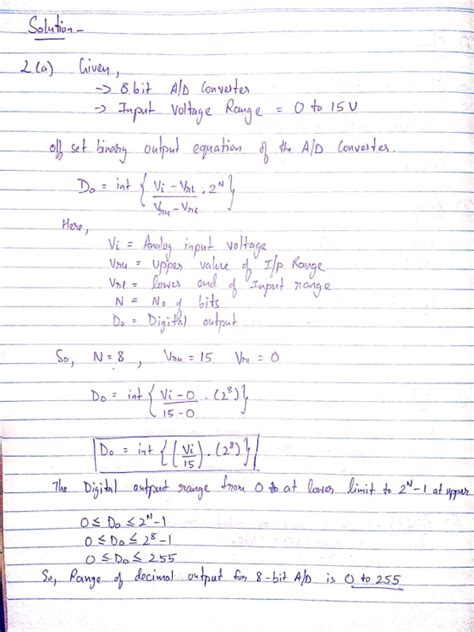 Solution -
2(a) Given,
-> 8 bit A/D Converter
-> Input Voltage Range = 0 to 15V
off set binary output equation of the A/D Converter.
Do = int { (Vi - Vrl)/(Vru - Vrl) . 2^N }
Here,
Vi = Analog input voltage
Vru = Upper value of I/p Range
Vrl = lower end of Input range
N = No of bits
Do = Digital output
So, N = 8 , Vru = 15 Vrl = 0
Do = int { (Vi - 0)/(15 - 0) . (2^8) }
Do = int { (Vi/15) . (2^8) }
The Digital output range from 0 to at lower limit to 2^N-1 at upper
0 ≤ Do ≤ 2^N-1
0 ≤ Do ≤ 2^8-1
0 ≤ Do ≤ 255
So, Range of decimal output for 8-bit A/D is 0 to 255